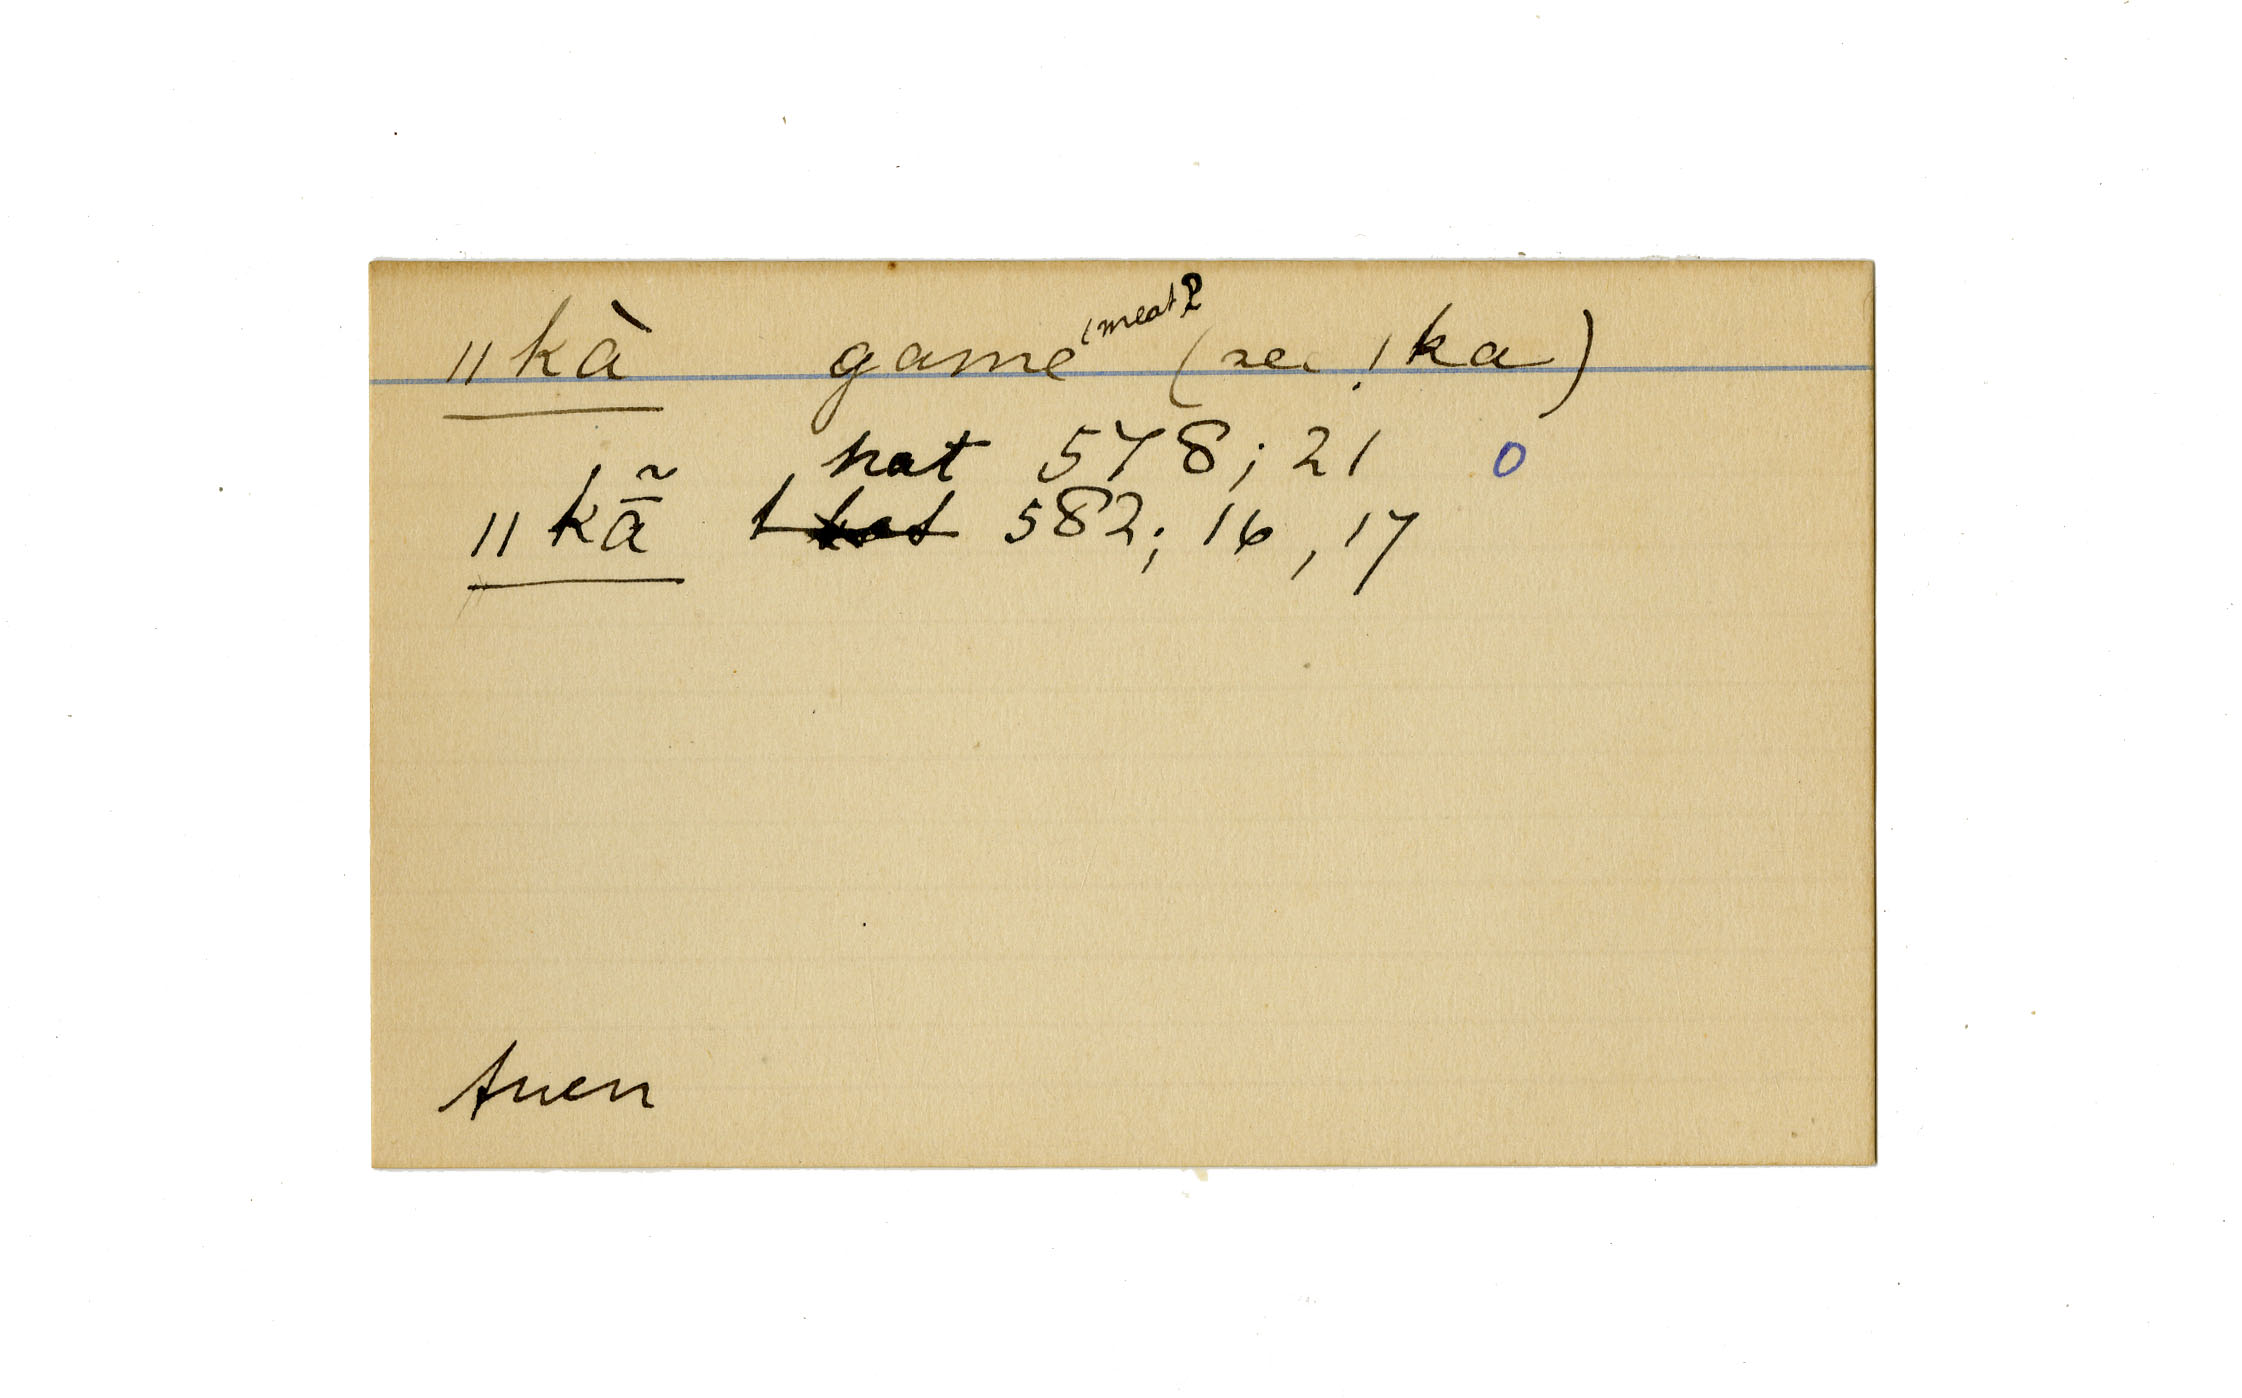 ǁkà game, meat? (see !ka)
hat 578; 21 0
ǁkā̃ 582; 16, 17
Auen